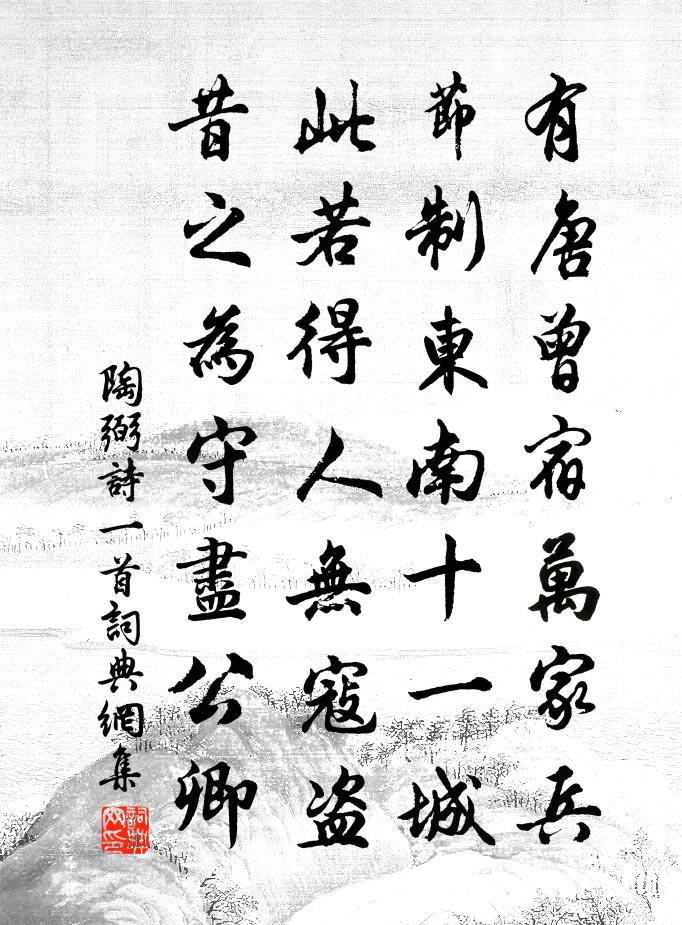 有唐曾宿萬家兵
節制東南十一城
此若得人無寇盜
昔之為守盡公卿
陶弼詩一首詞典網集
詞典网印